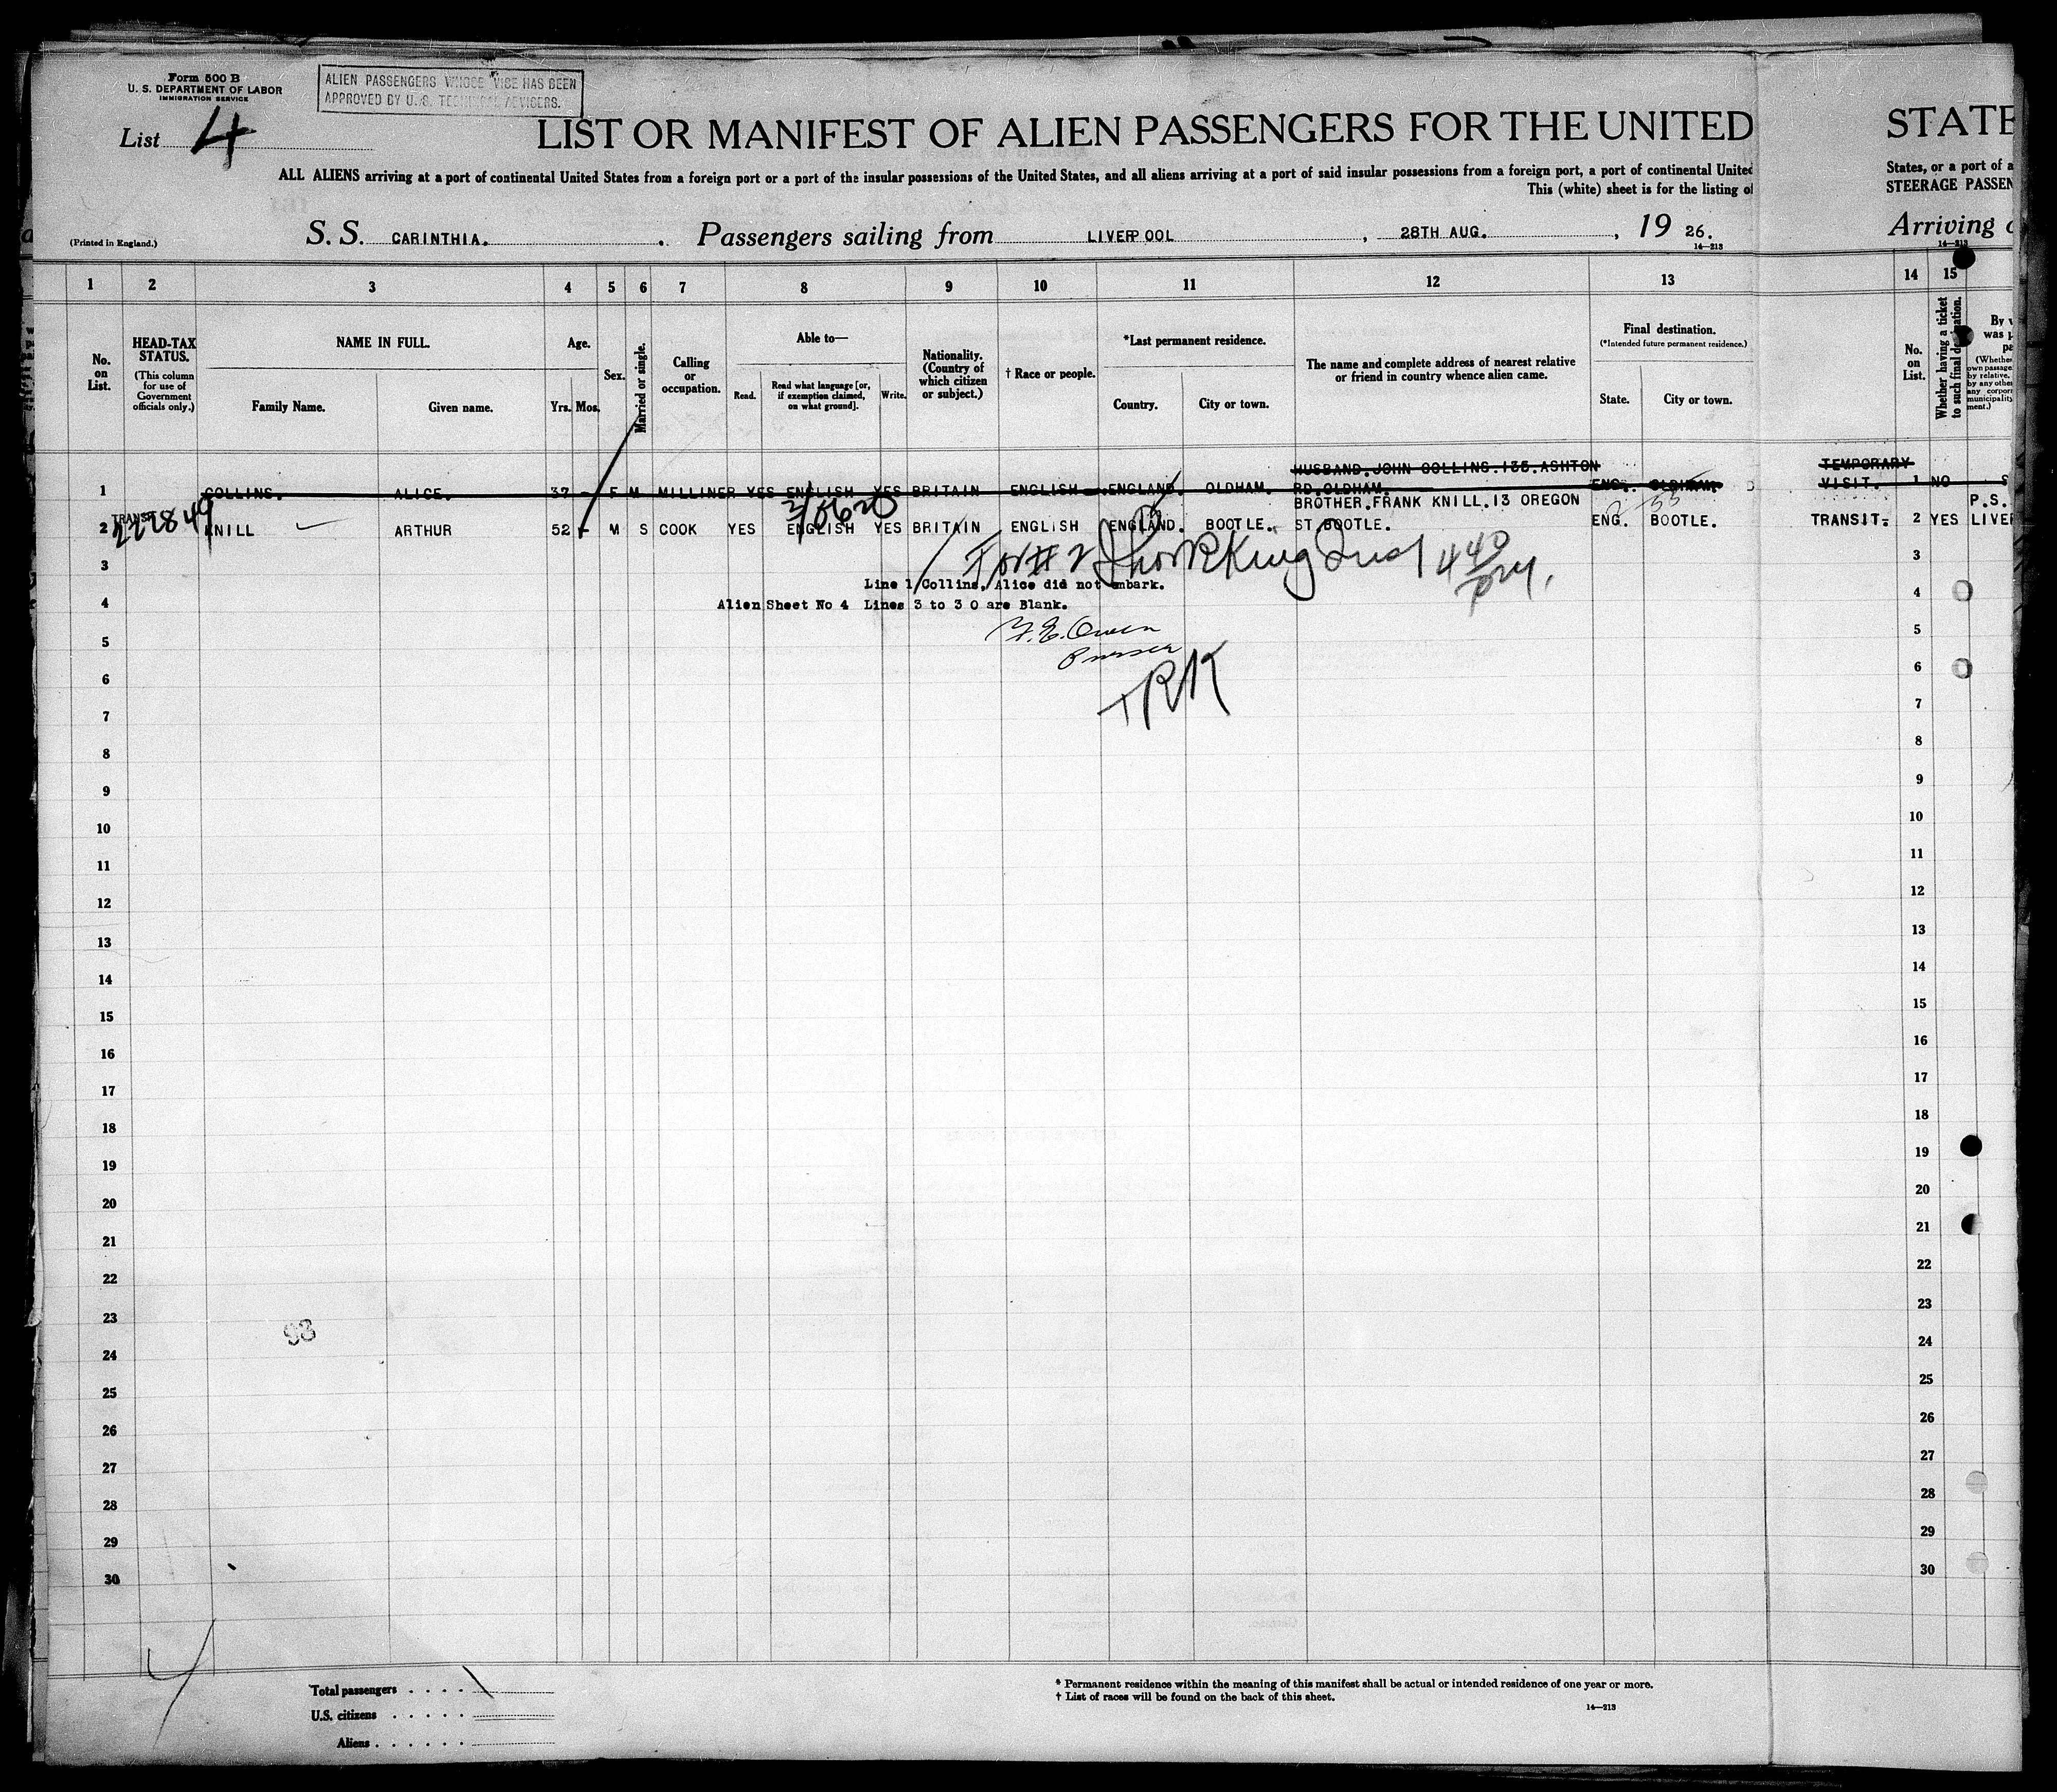 Form 500 B
U. S. DEPARTMENT OF LABOR
IMMIGRATION SERVICE
ALIEN PASSENGERS WHOSE VISE HAS BEEN
APPROVED BY U.S. TECHNICAL ADVISERS.
List 4
LIST OR MANIFEST OF ALIEN PASSENGERS FOR THE UNITED STATE
ALL ALIENS arriving at a port of continental United States from a foreign port or a port of the insular possessions of the United States, and all aliens arriving at a port of said insular possessions from a foreign port, a port of continental United States, or a port of a
This (white) sheet is for the listing of STEERAGE PASSEN
(Printed in England.)
S. S. CARINTHIA. Passengers sailing from LIVERPOOL, 28TH AUG., 19 26. Arriving
14—213 14—213
1 2 3 4 5 6 7 8 9 10 11 12 13 14 15
No. on List.
HEAD-TAX STATUS.
(This column for use of Government officials only.)
NAME IN FULL.
Family Name. Given name.
Age.
Yrs. Mos.
Sex.
Married or single.
Calling or occupation.
Able to—
Read. Read what language [or, if exemption claimed, on what ground]. Write.
Nationality. (Country of which citizen or subject.)
† Race or people.
*Last permanent residence.
Country. City or town.
The name and complete address of nearest relative or friend in country whence alien came.
Final destination.
(*Intended future permanent residence.)
State. City or town.
No. on List.
Whether having a ticket to such final destination.
By w
was p
pa
(Whether
own passage
by relative,
by any othe
any corpor
municipality
ment.)
HUSBAND.JOHN COLLINS.135.ASHTON TEMPORARY
1 COLLINS. ALICE. 37 - F M MILLINER YES ENGLISH YES BRITAIN ENGLISH ENGLAND. OLDHAM. RD.OLDHAM. ENG. OLDHAM. VISIT. 1 NO S
TRANSIT
222849
2/0620
BROTHER.FRANK KNILL.13 OREGON P.S.
2 KNILL ARTHUR 52 - M S COOK YES ENGLISH YES BRITAIN ENGLISH ENGLAND. BOOTLE. ST.BOOTLE. ENG. BOOTLE. TRANSIT. 2 YES LIVER
For # 2 King 440
3 3
Line 1 Collins, Alice did not embark.
4 Alien Sheet No 4 Lines 3 to 3 0 are Blank. 4
5 Owen 5
Purser
6 6
TRK
7 7
8 8
9 9
10 10
11 11
12 12
13 13
14 14
15 15
16 16
17 17
18 18
19 19
20 20
21 21
22 22
23 23
93
24 24
25 25
26 26
27 27
28 28
29 29
30 30
Total passengers . . . .
U.S. citizens . . . . .
Aliens . . . . . .
* Permanent residence within the meaning of this manifest shall be actual or intended residence of one year or more.
† List of races will be found on the back of this sheet.
14—213